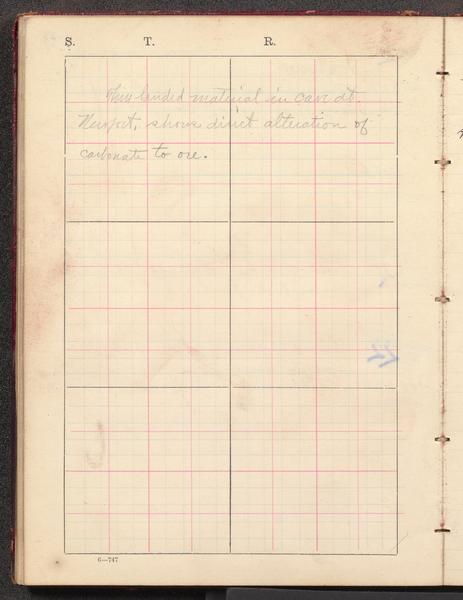 S. T. R.
This banded material in cave at
Newport, shows direct alteration of
carbonate to ore.
6—747